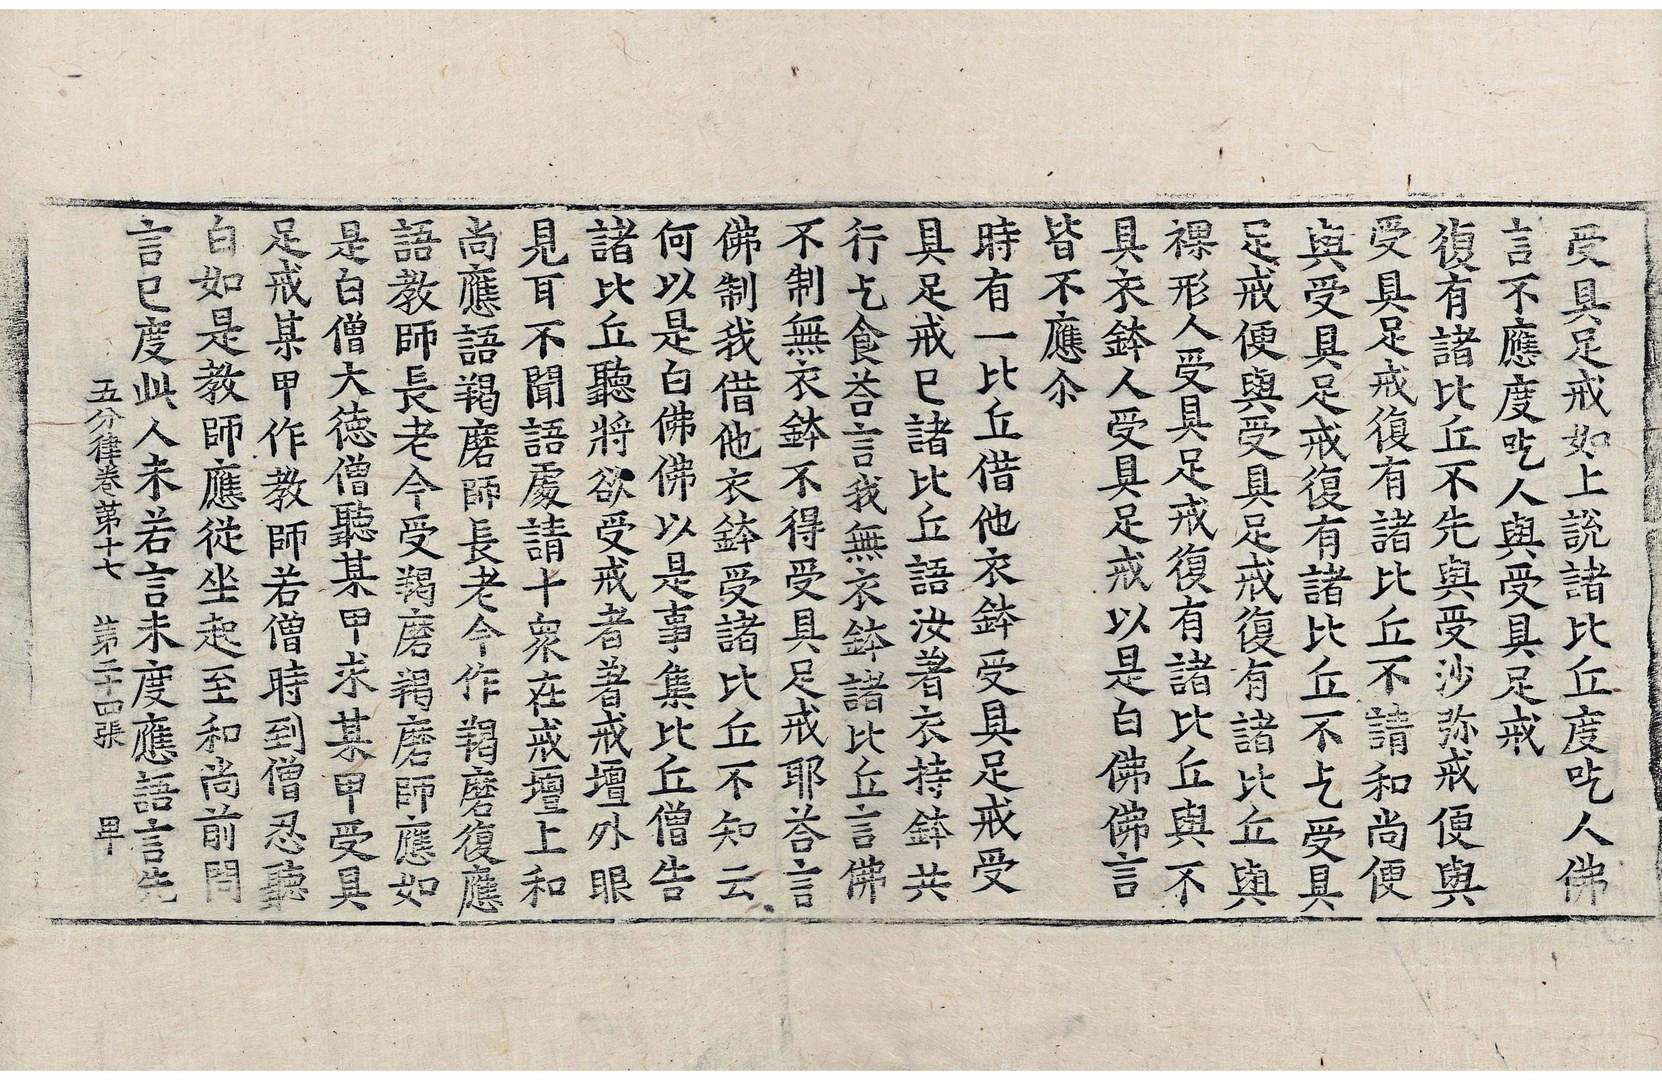 受具足戒如上說諸比丘度吃人佛
言不應度吃人與受具足戒
復有諸比丘不先與受沙弥戒便與
受具足戒復有諸比丘不請和尚便
與受具足戒復有諸比丘不乞受具
足戒便與受具足戒復有諸比丘與
裸形人受具足戒復有諸比丘與不
具衣鉢人受具足戒以是白佛佛言
皆不應尒
時有一比丘借他衣鉢受具足戒受
具足戒已諸比丘語汝著衣持鉢共
行乞食荅言我無衣鉢諸比丘言佛
不制無衣鉢不得受具足戒耶荅言
佛制我借他衣鉢受諸比丘不知云
何以是白佛佛以是事集比丘僧告
諸比丘聽將欲受戒者著戒壇外眼
見耳不聞語處請十衆在戒壇上和
尚應語羯磨師長老今作羯磨復應
語教師長老今受羯磨羯磨師應如
是白僧大德僧聽某甲求某甲受具
足戒某甲作教師若僧時到僧忍聽
白如是教師應從坐起至和尚前問
言已度此人未若言未度應語言先
五分律卷第十七 第二十四張 甲